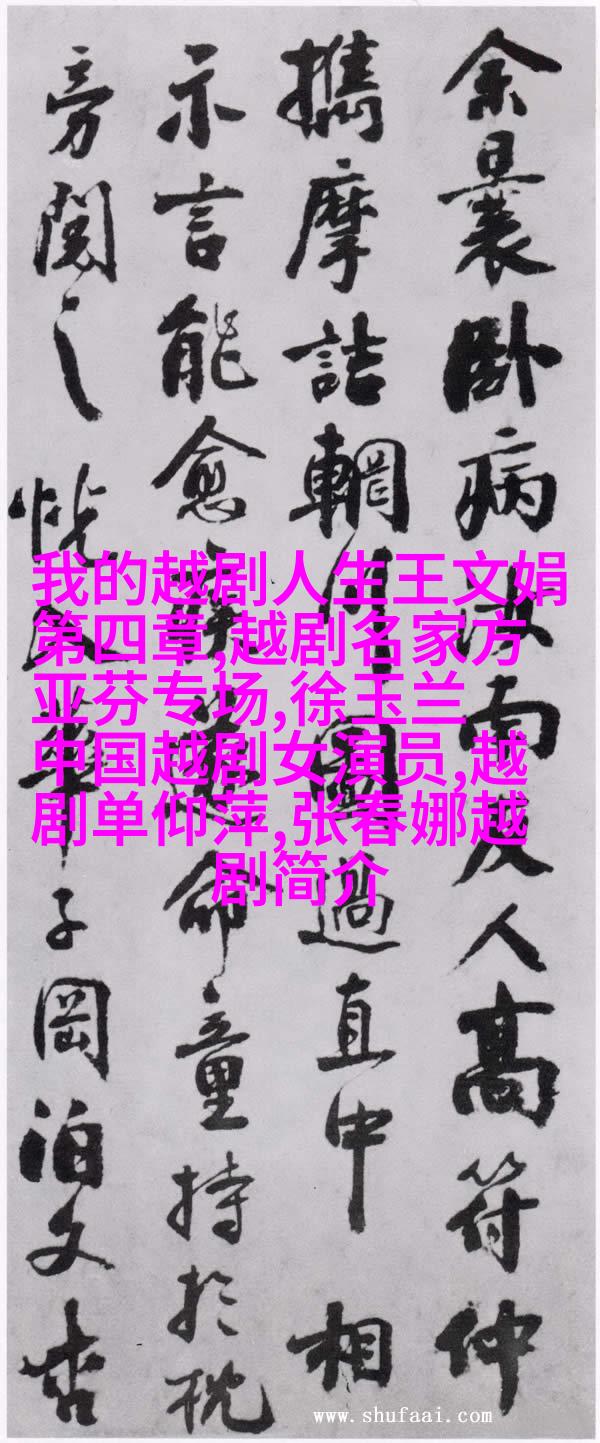 余曩卧病汝南友人高符仲
攜摩詰輞川圖過直中相
示言能愈疾遂命童持於枕
旁閱之恍入華子岡泊文杏
我的越剧人生王文娟
第四章,越剧名家方
亚芬专场,徐玉兰
中国越剧女演员,越
剧单仰萍,张春娜越
剧简介
www.shufaai.com